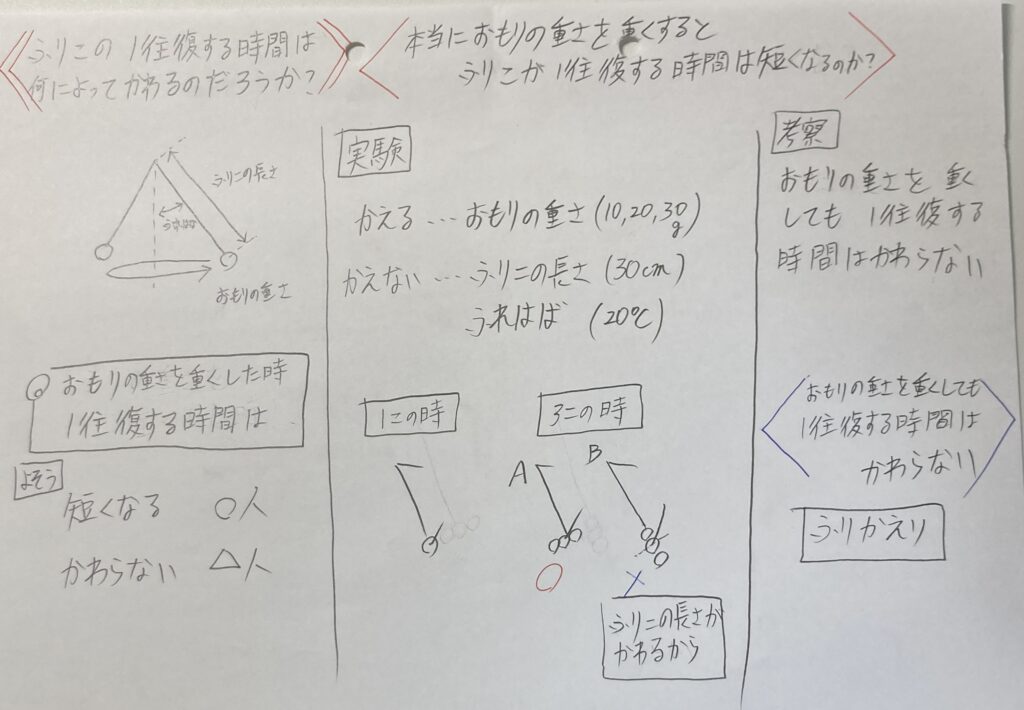 ふりこの 1往復する時間は
何によってかわるのだろうか?
本当におもりの重さを重くすると
ふりこが 1往復する時間は短くなるのか?
ふりこの長さ
ふれはば
おもりの重さ
おもりの重さを重くした時
1往復する時間は
よそう
短くなる ○人
かわらない △人
実験
かえる…おもりの重さ(10,20,30g)
かえない…ふりこの長さ(30cm)
ふれはば (20℃)
1この時
3この時
A
B
○
×
ふりこの長さが
かわるから
考察
おもりの重さを重く
しても 1往復する
時間はかわらない
おもりの重さを重くしても
1往復する時間は
かわらない
ふりかえり